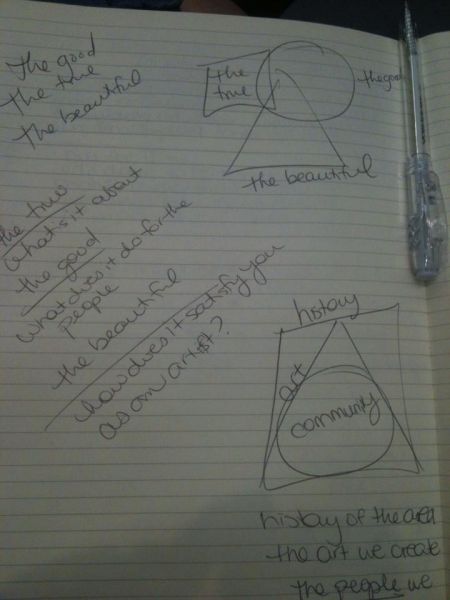 The good
The true
The beautiful
the true
the good
the beautiful
the true
what is it about
the good
what does it do for the
people
the beautiful
how does it satisfy you
as an artist?
history
art
community
history of the area
the art we create
the people we